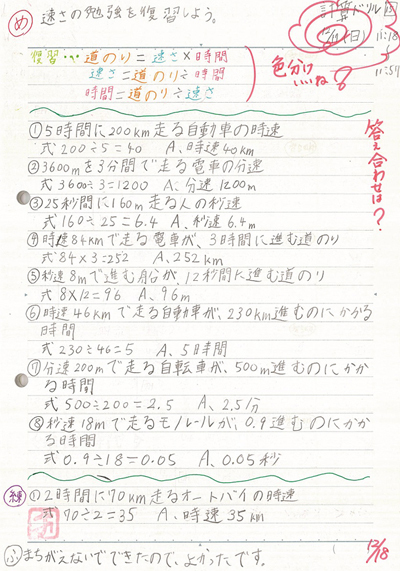 め 速さの勉強を復習しよう。
計算ドリル
11:18
11:57
復習…道のり=速さ×時間
速さ=道のり÷時間
時間=道のり÷速さ
色分け
いいね
答え合わせは?
①5時間に200km走る自動車の時速
式 200÷5=40 A、時速40km
②3600mを3分間で走る電車の分速
式 3600÷3=1200 A、分速1200m
③25秒間に160m走る人の秒速
式 160÷25=6.4 A、秒速6.4m
④時速84kmで走る電車が、3時間に進む道のり
式 84×3=252 A、252km
⑤秒速8mで進む船が、12秒間に進む道のり
式 8×12=96 A、96m
⑥時速46kmで走る自動車が、230km進むのにかかる
時間
式 230÷46=5 A、5時間
⑦分速200mで走る自転車が、500m進むのにかか
る時間
式 500÷200=2.5 A、2.5分
⑧秒速18mで走るモノレールが、0.9進むのにかか
る時間
式 0.9÷18=0.05 A、0.05秒
練 ①2時間に70km走るオートバイの時速
式 70÷2=35 A、時速35km
12/18
ふ まちがえないでできたので、よかったです。